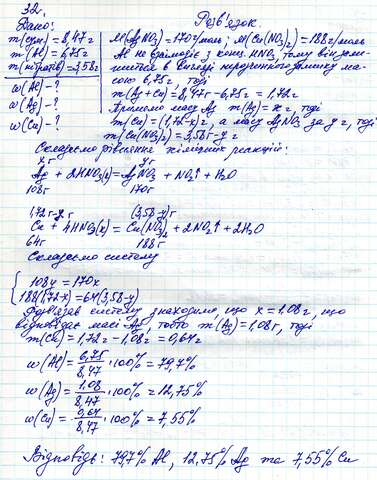 32.
Дано:
m(сум) = 8,47 г
m(Al) = 6,75 г
m(нітратів) = 3,58 г
w(Al) - ?
w(Ag) - ?
w(Cu) - ?
Розв'язок.
M(AgNO3) = 170 г/моль; M(Cu(NO3)2) = 188 г/моль
Al не взаємодіє з конц. HNO3, тому він залишиться
в вигляді нерозчинного залишку масою
6,75 г, тоді
m(Ag + Cu) = 8,47 г - 6,75 г = 1,72 г
Приймемо масу Ag m(Ag) = x г, тоді
m(Cu) = (1,72 - x) г, а масу AgNO3 за y г, тоді
m(Cu(NO3)2) = 3,58 г - y г
Складаємо рівняння хімічних реакцій:
x г y г
Ag + 2HNO3(к) = AgNO3 + NO2↑ + H2O
108г 170г
1,72 г - x г (3,58-y) г
Cu + 4HNO3(к) = Cu(NO3)2 + 2NO2↑ + 2H2O
64г 188г
Складаємо систему
108y = 170x
188(1,72-x) = 64(3,58-y)
Розв'язав систему знаходимо, що x = 1,08 г, що
відповідає масі Ag, тобто m(Ag) = 1,08 г, тоді
m(Cu) = 1,72 г - 1,08 г = 0,64 г
w(Al) = 6,75/8,47 · 100% = 79,7%
w(Ag) = 1,08/8,47 · 100% = 12,75%
w(Cu) = 0,64/8,47 · 100% = 7,55%
Відповідь: 79,7% Al, 12,75% Ag та 7,55% Cu